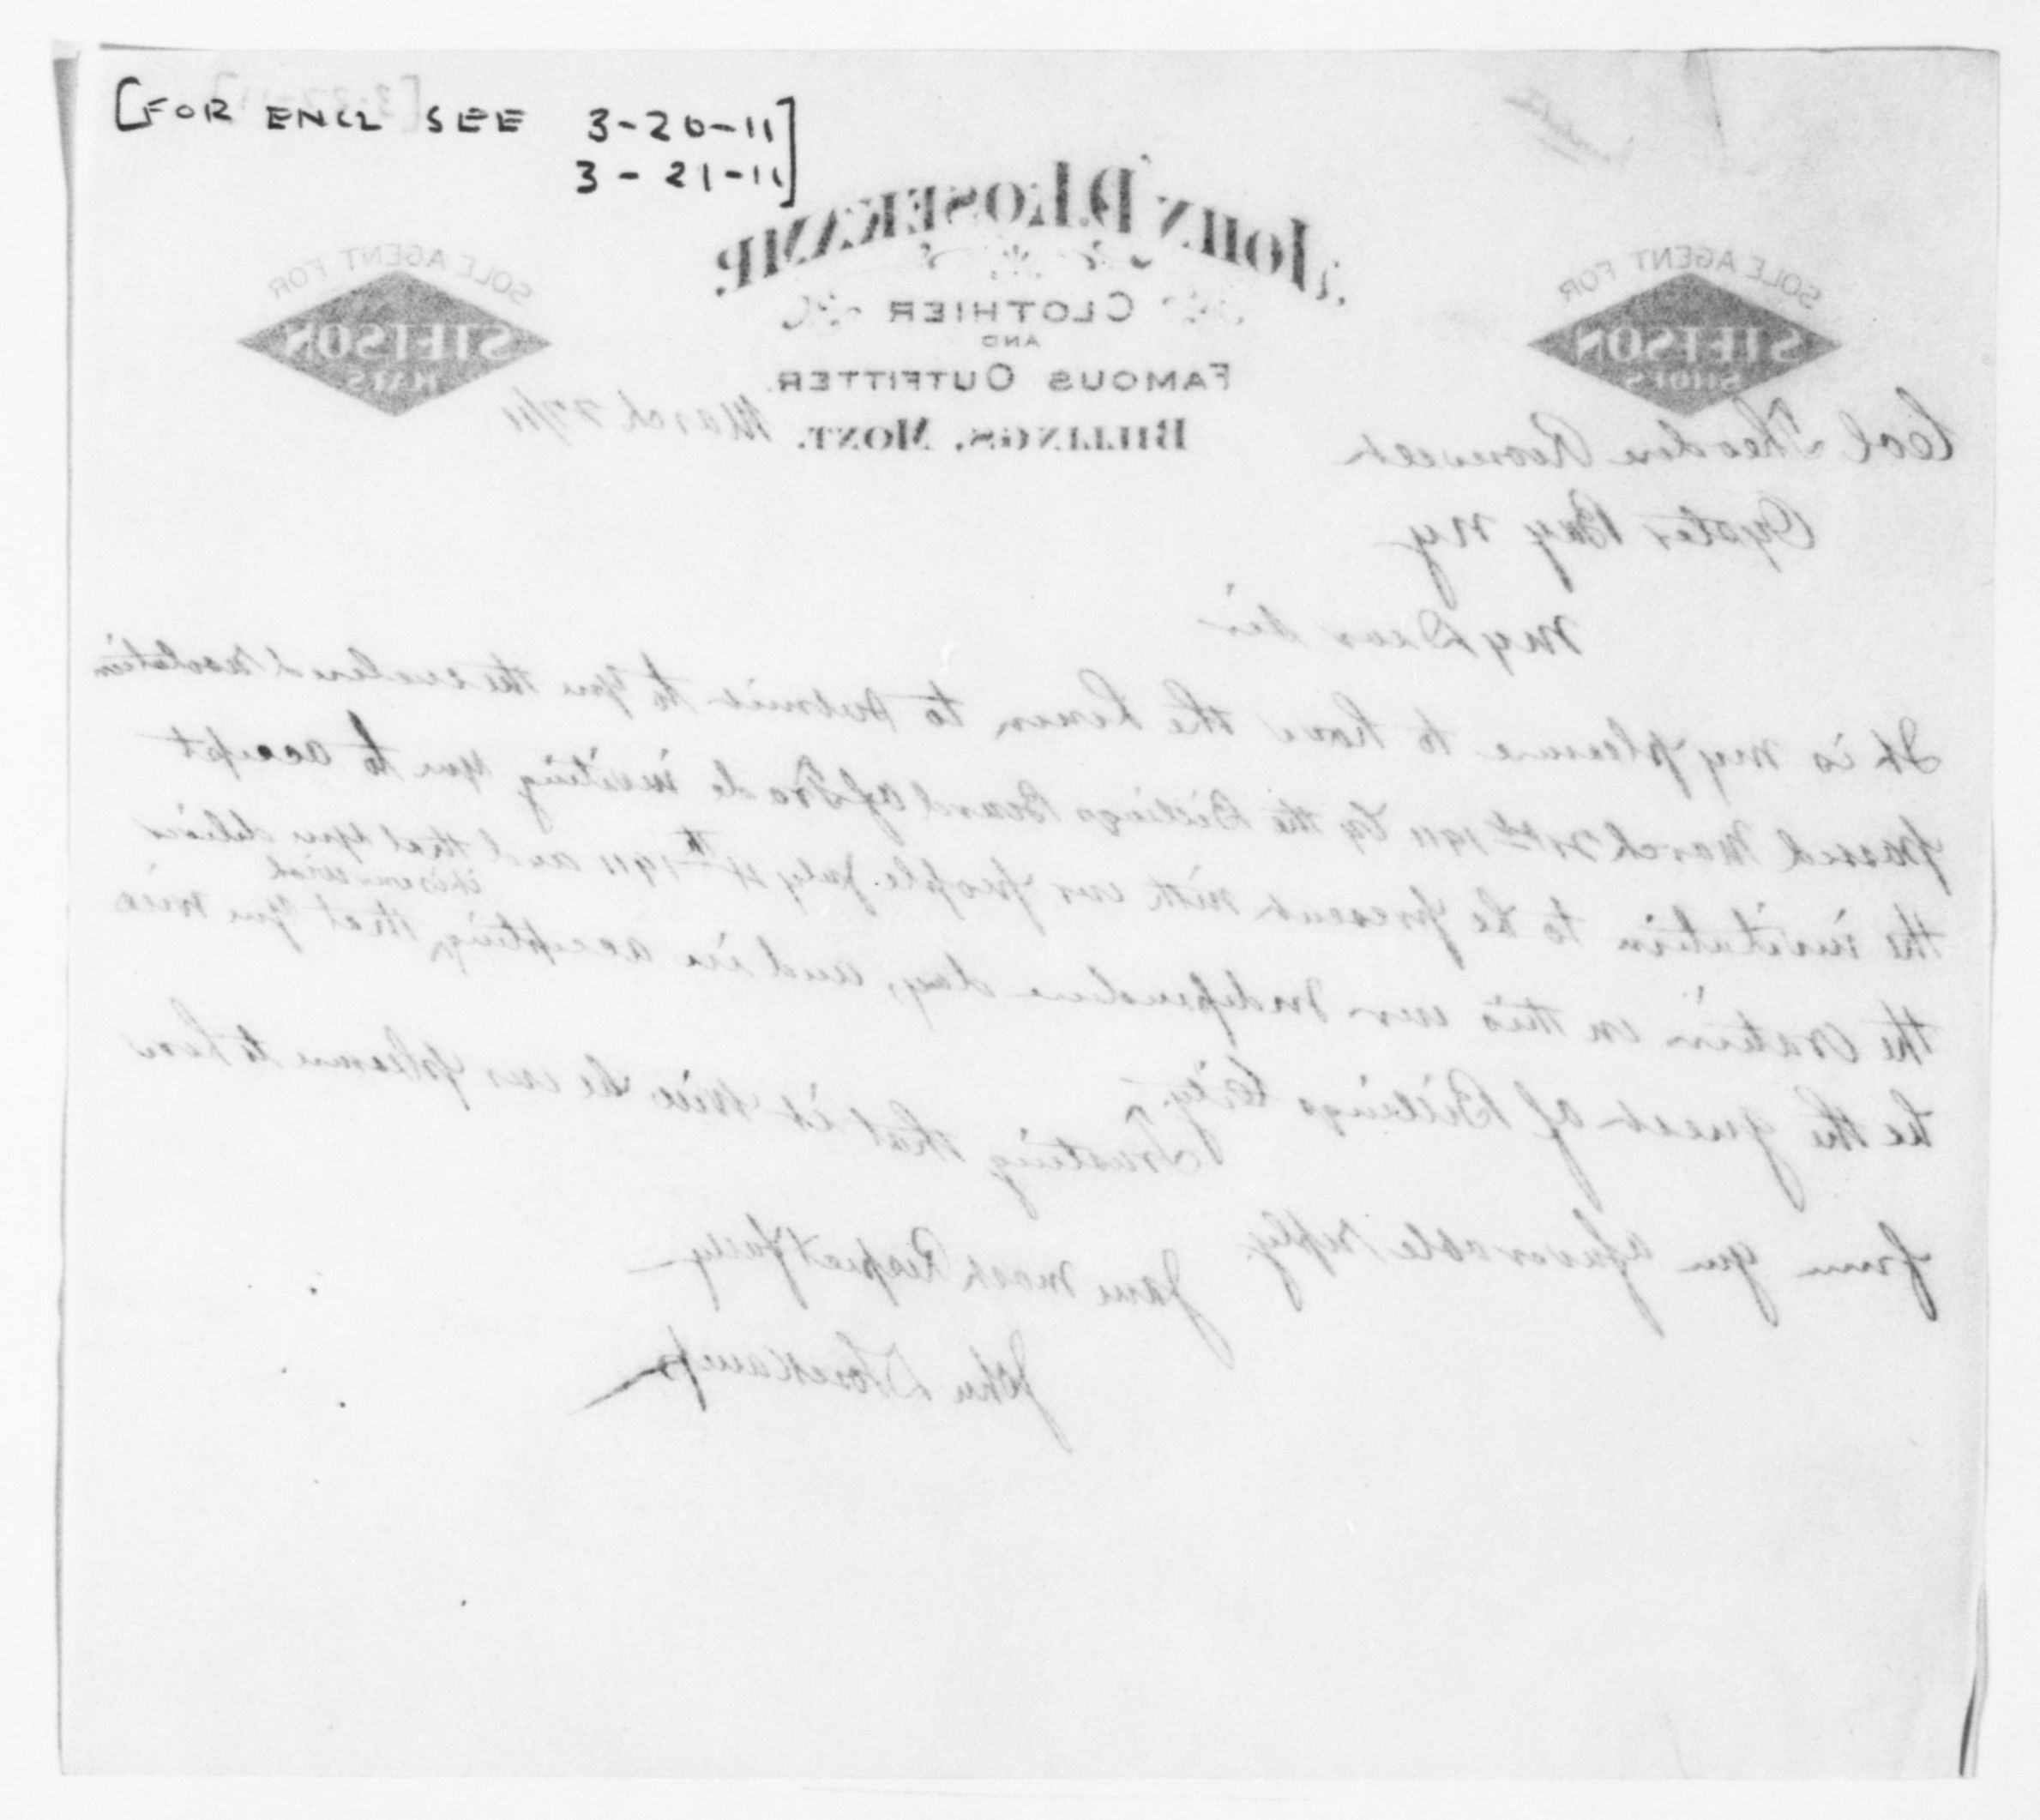 [FOR ENCL SEE 3-20-11]
3-21-11]
[3-27-11]
JOHN D. LOSEKAMP.
CLOTHIER
AND
FAMOUS OUTFITTER.
BILLINGS, MONT.
SOLE AGENT FOR
STETSON
SHOES
SOLE AGENT FOR
STETSON
HATS
March 27/11
Col Theodore Roosevelt
Oyster Bay NY
My Dear Sir
It is my pleasure to have the honor to submit to you the enclosed resolution
passed March 21st 1911 by the Billings Board of Trade inviting you to accept
the invitation to be present with our people July 4th 1911 and that you deliver
the oration on this our Independence day, and in accepting this that you will
be the guest of Billings City.
Trusting that it will be our pleasure to have
from you a favorable reply
I am most Respectfully
John D Losekamp